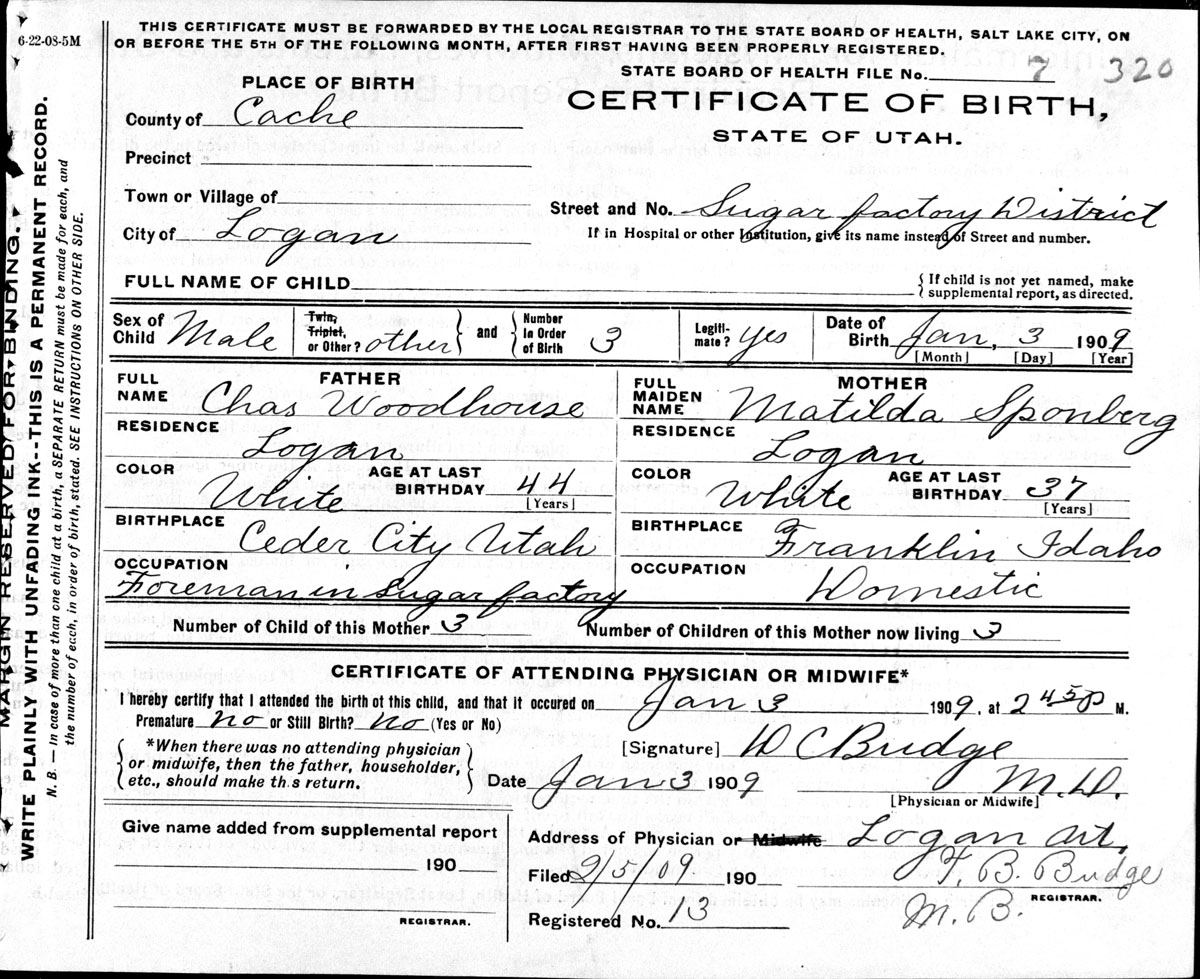 6-22-08-5M
THIS CERTIFICATE MUST BE FORWARDED BY THE LOCAL REGISTRAR TO THE STATE BOARD OF HEALTH, SALT LAKE CITY, ON
OR BEFORE THE 5TH OF THE FOLLOWING MONTH, AFTER FIRST HAVING BEEN PROPERLY REGISTERED.
STATE BOARD OF HEALTH FILE No. 7 320
PLACE OF BIRTH
CERTIFICATE OF BIRTH,
STATE OF UTAH.
County of Cache
Precinct
Town or Village of
Street and No. Sugar factory District
City of Logan
If in Hospital or other Institution, give its name instead of Street and number.
FULL NAME OF CHILD
{ If child is not yet named, make
supplemental report, as directed.
Sex of Child Male
Twin, Triplet, or Other? other } and { Number in Order of Birth 3
Legiti-mate? yes
Date of Birth Jan, 3 1909
[Month] [Day] [Year]
FATHER
FULL NAME Chas Woodhouse
RESIDENCE Logan
COLOR White
AGE AT LAST BIRTHDAY 44
[Years]
BIRTHPLACE Ceder City Utah
OCCUPATION
Foreman in Sugar factory
MOTHER
FULL MAIDEN NAME Matilda Sponberg
RESIDENCE Logan
COLOR White
AGE AT LAST BIRTHDAY 37
[Years]
BIRTHPLACE Franklin Idaho
OCCUPATION Domestic
Number of Child of this Mother 3 Number of Children of this Mother now living 3
CERTIFICATE OF ATTENDING PHYSICIAN OR MIDWIFE*
I hereby certify that I attended the birth of this child, and that it occured on Jan 3 1909, at 2 45 P M.
Premature no or Still Birth? no (Yes or No)
{ *When there was no attending physician
or midwife, then the father, householder,
etc., should make th.s return. }
[Signature] D C Budge
Date Jan 3 1909 M.D.
[Physician or Midwife]
Give name added from supplemental report
190
REGISTRAR.
Address of Physician or Midwife Logan Ut.
Filed 2/5/09 190
B. Budge
REGISTRAR.
Registered No. 13
MARGIN RESERVED FOR BINDING.
WRITE PLAINLY WITH UNFADING INK--THIS IS A PERMANENT RECORD.
N. B. — In case of more than one child at a birth, a SEPARATE RETURN must be made for each, and
the number of each, in order of birth, stated. SEE INSTRUCTIONS ON OTHER SIDE.